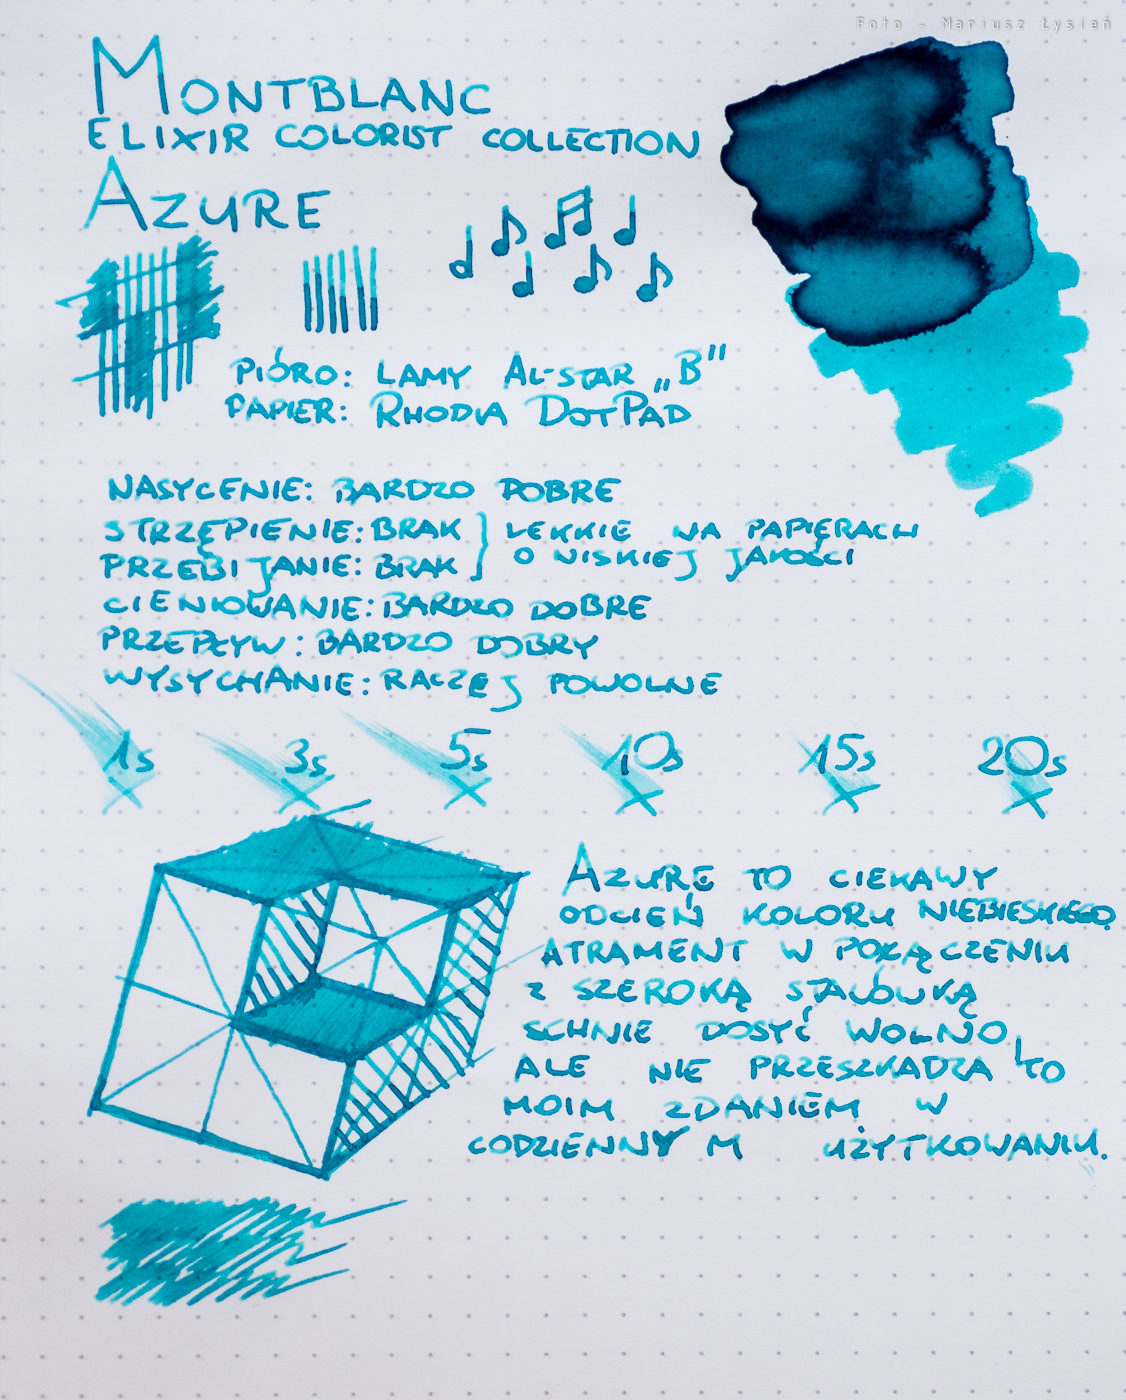 Foto - Mariusz Łysień
MONTBLANC
ELIXIR COLORIST COLLECTION
AZURE
PIÓRO: LAMY AL-STAR „B”
PAPIER: RHODIA DOTPAD
NASYCENIE: BARDZO DOBRE
STRZĘPIENIE: BRAK } LEKKIE NA PAPIERACH
PRZEBIJANIE: BRAK } O NISKIEJ JAKOŚCI
CIENIOWANIE: BARDZO DOBRE
PRZEPŁYW: BARDZO DOBRY
WYSYCHANIE: RACZEJ POWOLNE
1s 3s 5s 10s 15s 20s
AZURE TO CIEKAWY
ODCIEŃ KOLORU NIEBIESKIEGO.
ATRAMENT W POŁĄCZENIU
Z SZEROKĄ STALÓWKĄ
SCHNIE DOSYĆ WOLNO,
ALE NIE PRZESZKADZA TO
MOIM ZDANIEM W
CODZIENNYM UŻYTKOWANIU.